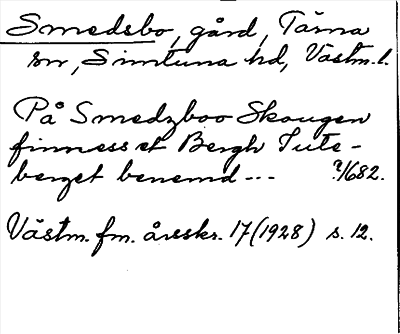 Smedsbo, gård, Tärna
sn, Simtuna hd, Västm. l.
På Smedzboo Skougen
finness et Bergh Tute-
berget benemd --- ?/1682.
Västm. fm. årsskr. 17 (1928) s. 12.